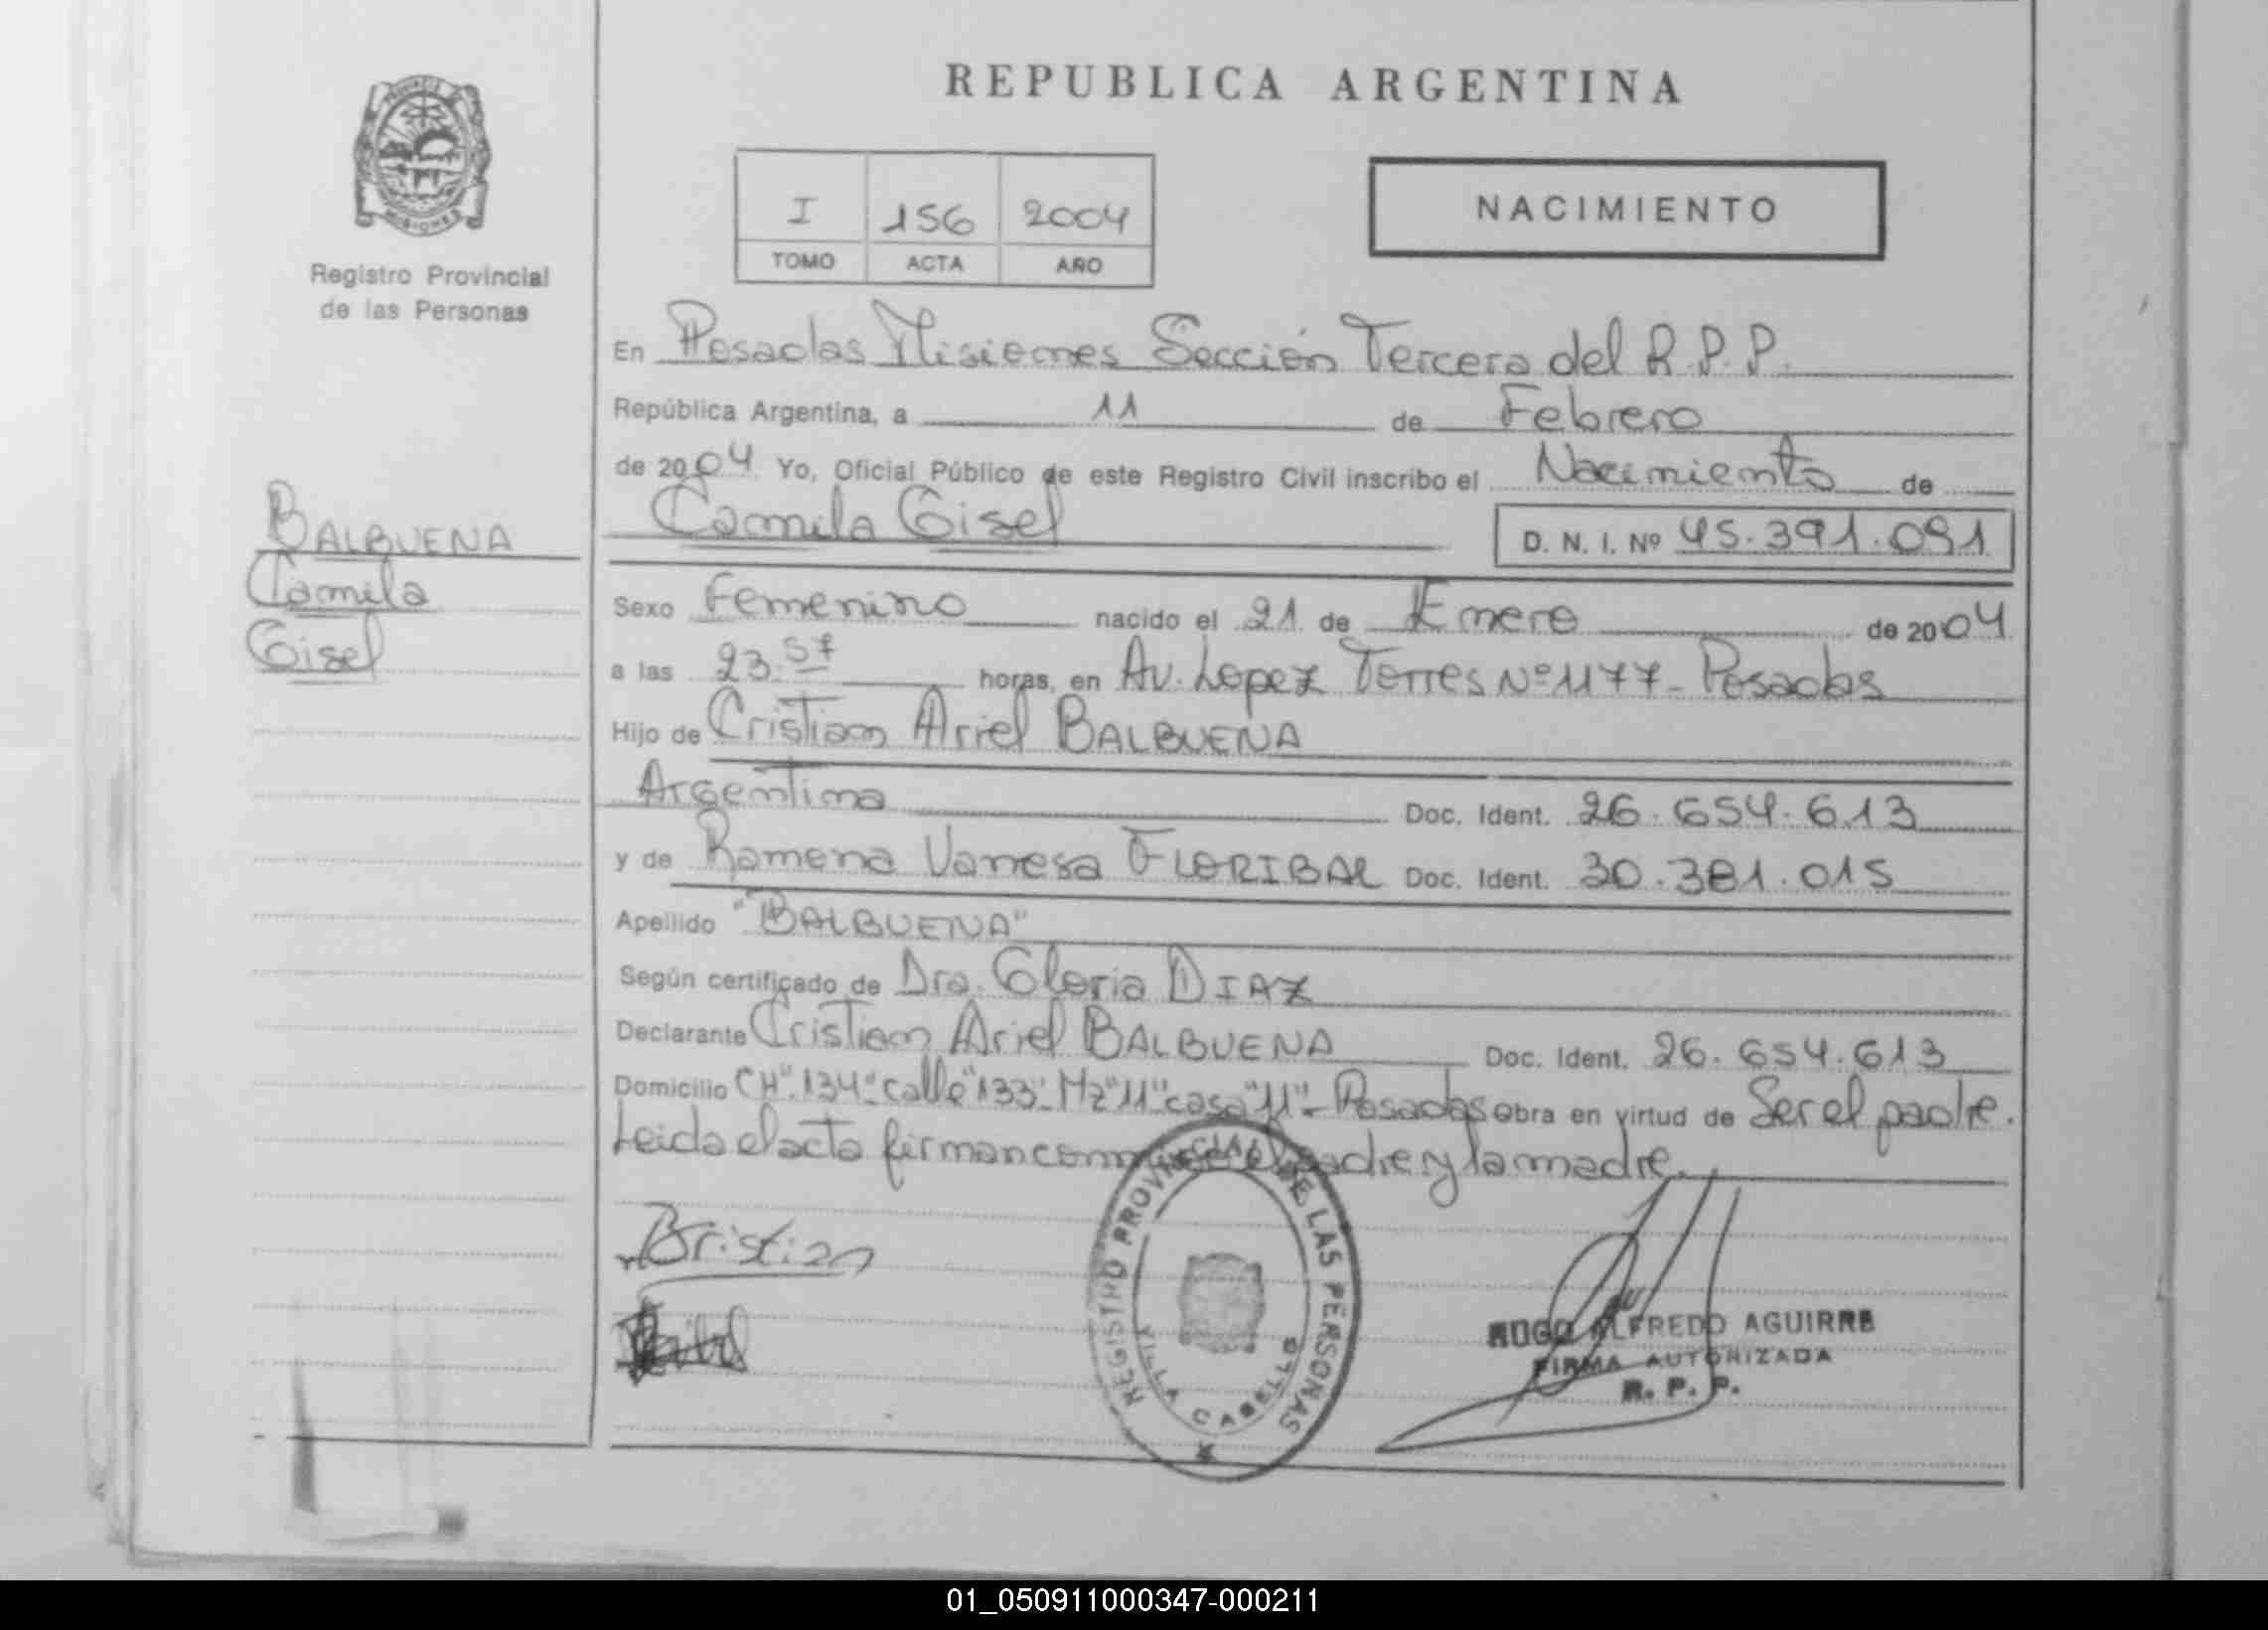 REPUBLICA ARGENTINA
I 156 2004
TOMO ACTA AÑO
NACIMIENTO
Registro Provincial
de las Personas
En Posadas Misiones Sección Tercera del R.P.P.
República Argentina, a 11 de Febrero
de 2004 Yo, Oficial Público de este Registro Civil inscribo el Nacimiento de
Camila Gisel D. N. I. Nº 45.391.091
BALBUENA
Camila
Gisel
Sexo Femenino nacido el 21 de Enero de 2004
a las 23.57 horas, en Av. Lopez Torres Nº 1177 - Posadas
Hijo de Cristian Ariel BALBUENA
Argentina Doc. Ident. 26.654.613
y de Ramona Vanesa FLORIBAL Doc. Ident. 30.381.015
Apellido "BALBUENA"
Según certificado de Dra. Gloria DIAZ
Declarante Cristian Ariel BALBUENA Doc. Ident. 26.654.613
Domicilio CH"134" calle"133" Mz"11" casa"11" - Posadas obra en virtud de Ser el padre.
Leida el acta firman el padre y la madre.
Cristian
REGISTRO PROVINCIAL DE LAS PERSONAS
VILLA CABELLO
HUGO ALFREDO AGUIRRE
FIRMA AUTORIZADA
R. P. P.
01_050911000347-000211